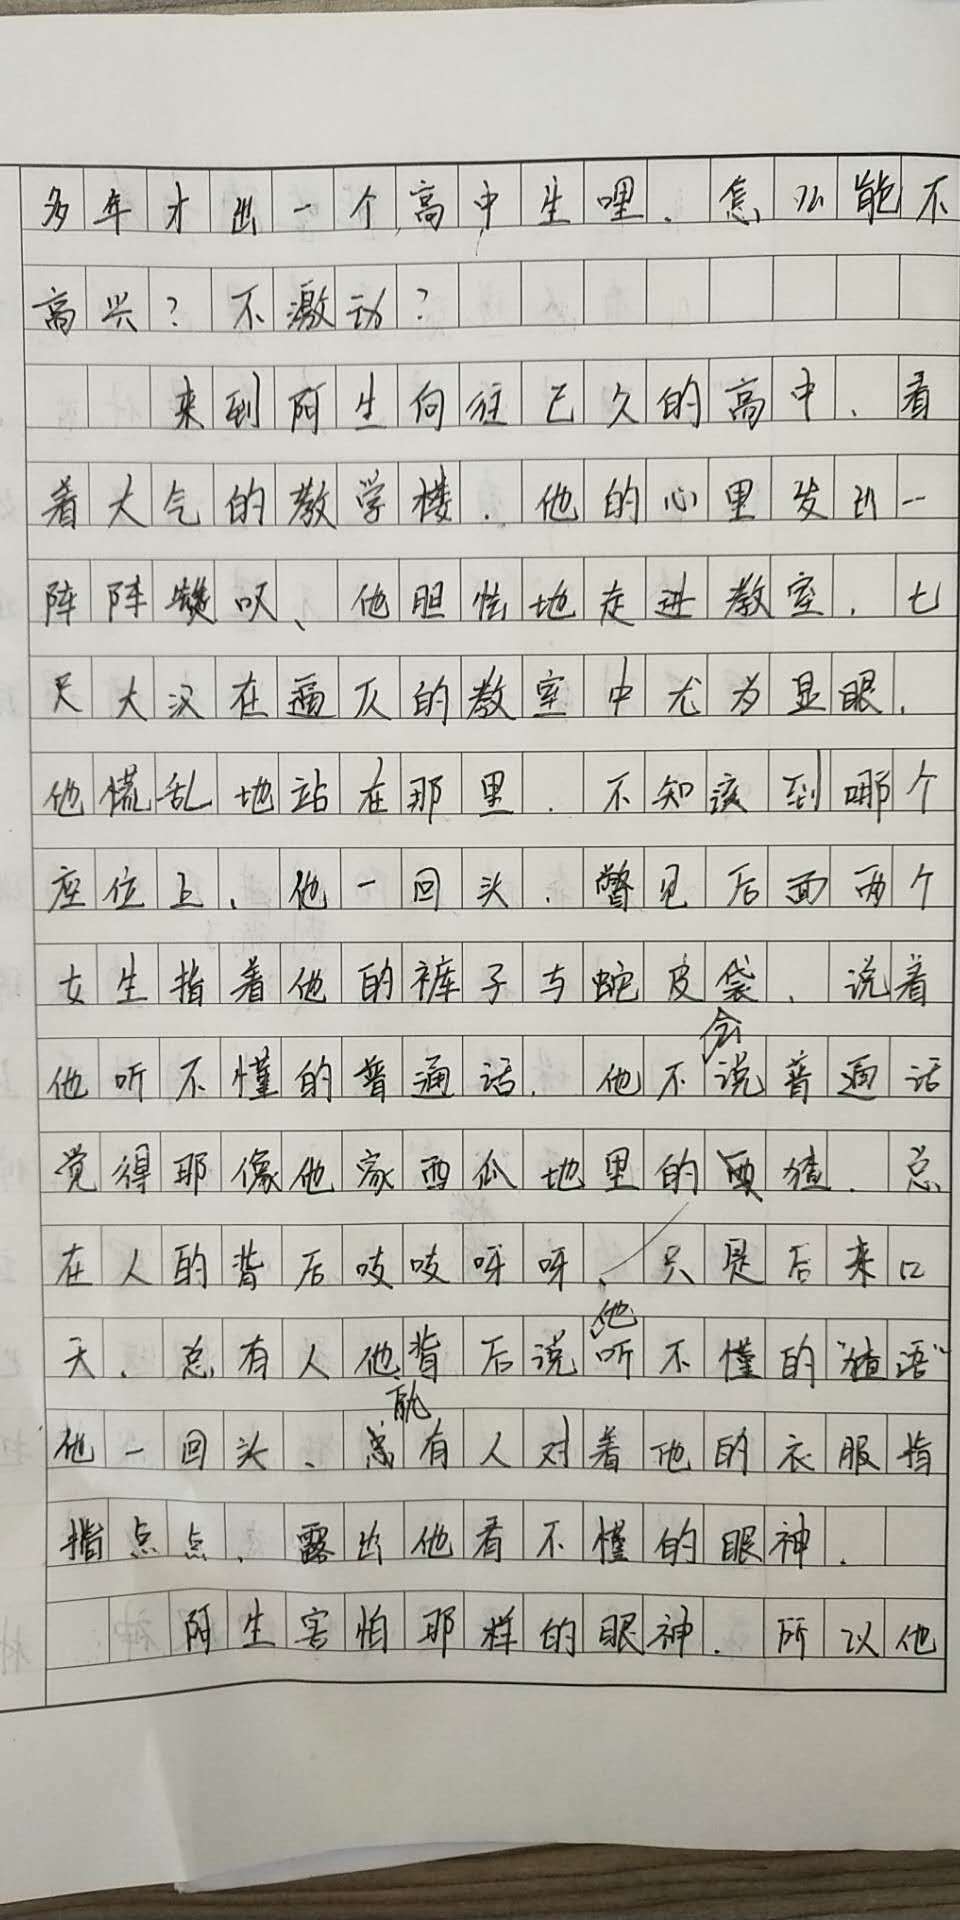 多年才出一个高中生哩，怎么能不
高兴？不激动？
来到阿生向往已久的高中，看
着大气的教学楼，他的心里发出一
阵阵叹、他胆怯地走进教室，七
尺大汉在逼仄的教室中尤为显眼，
他慌乱地站在那里，不知该到哪个
座位上、他一回头，瞥见后面两个
女生指着他的裤子与蛇皮袋、说着
他听不懂的普通话，他不会说普通话
觉得那像他家西瓜地里的猹，总
在人的背后吱吱呀呀、只是后来口
天，总有人他背后说他听不懂的"猹语"
他一回头、就有人对着他的衣服指
指点点、露出他看不懂的眼神．
阿生害怕那样的眼神．所以他